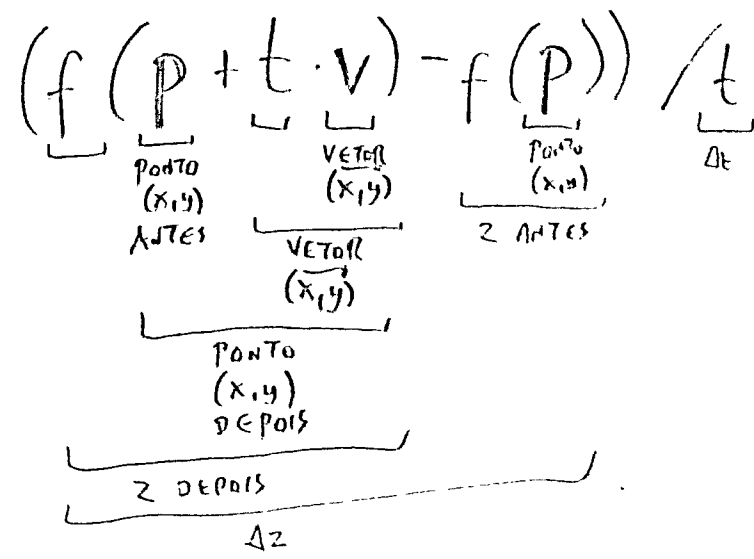 (f(P + t · V) - f(P)) / t
PONTO (x,y) ANTES
VETOR (x,y)
PONTO (x,y)
Δt
VETOR (x,y)
z ANTES
PONTO (x,y) DEPOIS
z DEPOIS
Δz